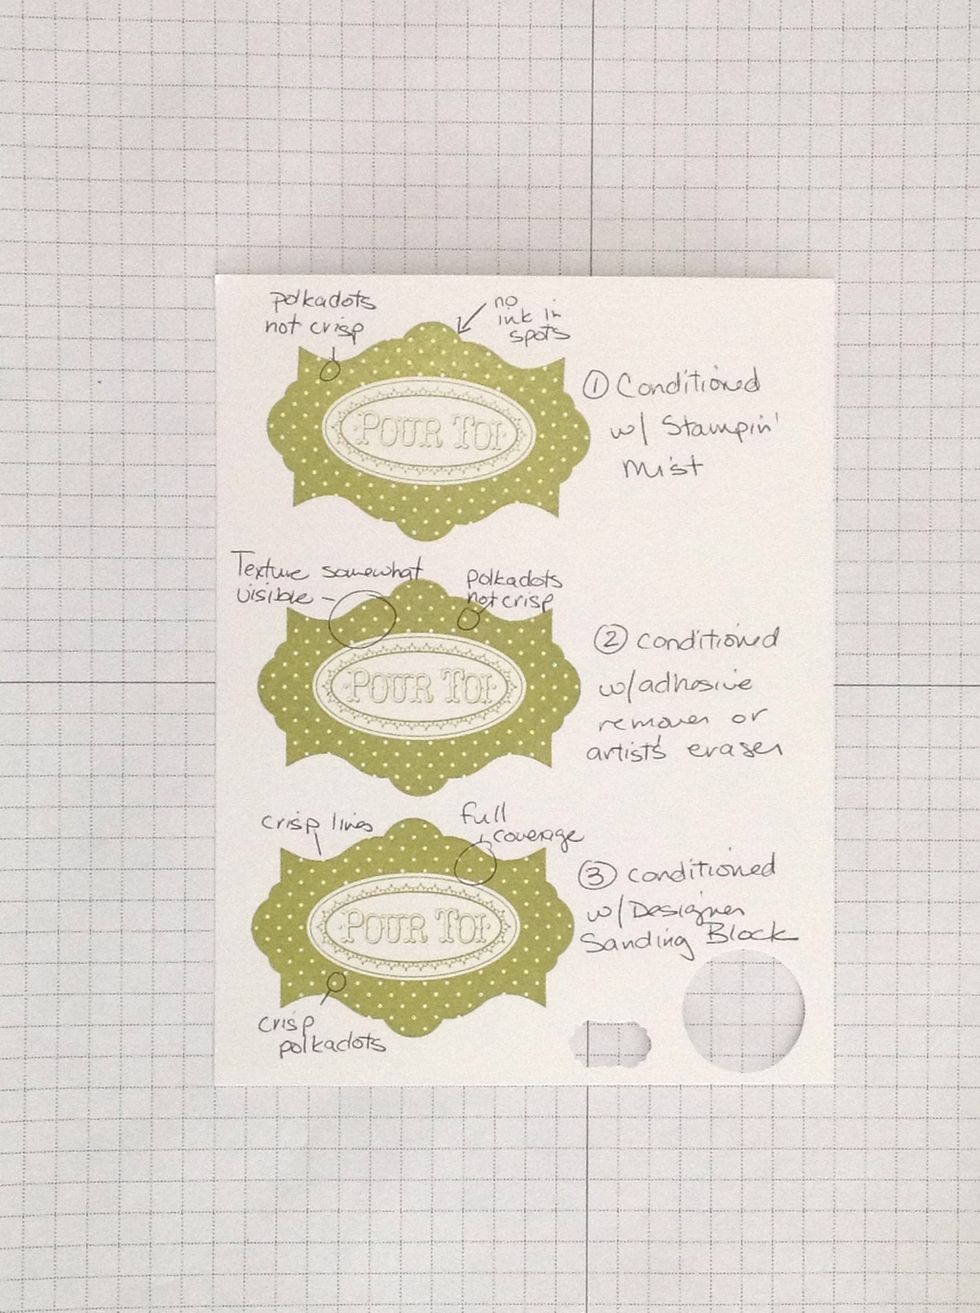 polkadots
not crisp
no
ink in
spots
POUR TOI
① Conditioned
w/ Stampin'
Mist
Texture somewhat
visible –
polkadots
not crisp
POUR TOI
② conditioned
w/adhesive
remover or
artist's eraser
crisp lines
full
coverage
POUR TOI
③ conditioned
w/Designer
Sanding Block
crisp
polkadots